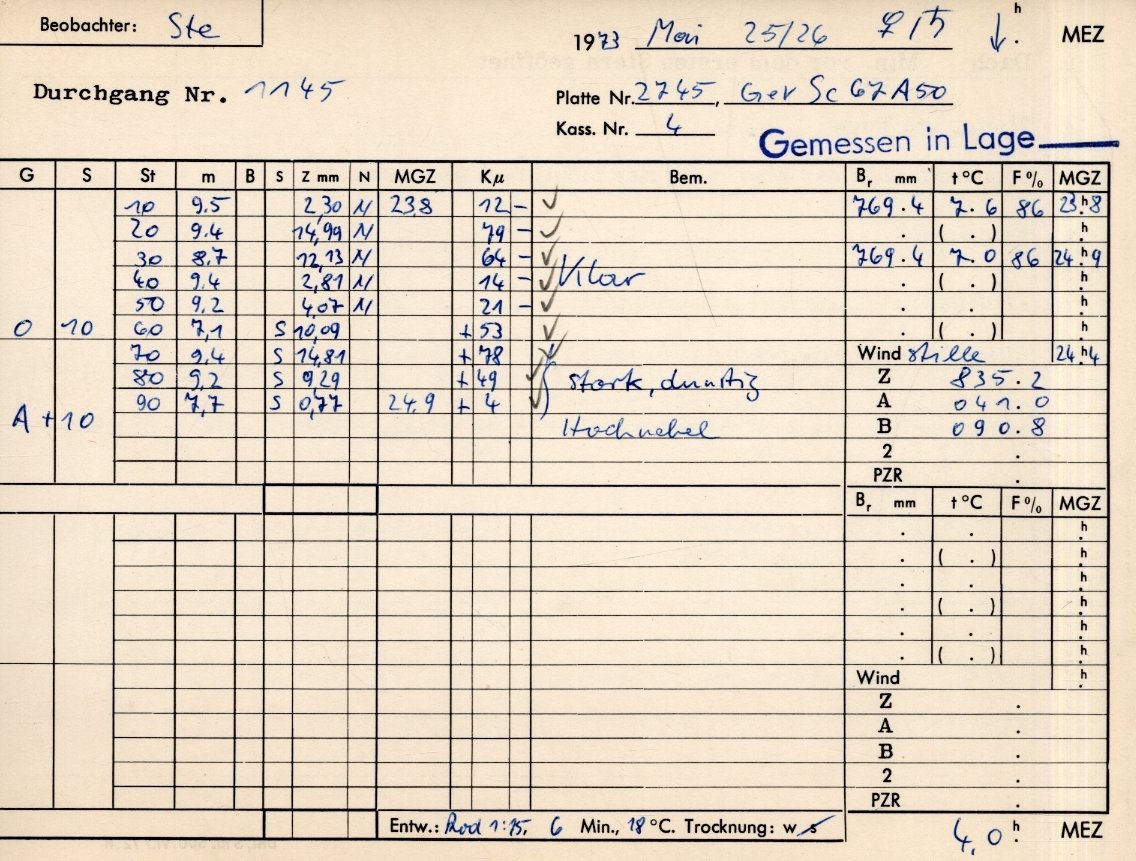 Beobachter: Ste
1973 Mai 25/26 ↓ h . MEZ
Durchgang Nr. 1145
Platte Nr. 2745, Gev Sc 67A50
Kass. Nr. 4
Gemessen in Lage
G S St m B S Z mm N MGZ Kµ Bem. Br mm t °C F % MGZ
10 9.5 2,30 N 23.8 12 - ✓ 769.4 7.6 86 23.h8
20 9.4 14,99 N 79 - ✓ . ( . ) .h
30 8.7 12,13 N 64 - ✓ 769.4 7.0 86 24.h9
40 9.4 2,81 N 14 - ✓ Klar . ( . ) .h
50 9.2 4,07 N 21 - ✓ . . .h
0 10 60 7,1 S 10,09 + 53 ✓ . ( . ) .h
70 9,4 S 14,81 + 78 ✓ Wind stille 24.h4
80 9,2 S 9,29 + 49 ✓ stark, dunstig Z 835.2
A +10 90 7,7 S 0,77 24,9 + 4 ✓ A 041.0
Hochnebel B 090.8
2 .
PZR .
Br mm t °C F % MGZ
. . .h
. ( . ) .h
. . .h
. ( . ) .h
. . .h
. ( . ) .h
Wind .h
Z .
A .
B .
2 .
PZR .
Entw.: Rod 1:75, 6 Min., 18 °C. Trocknung: w s
4,0 h. MEZ